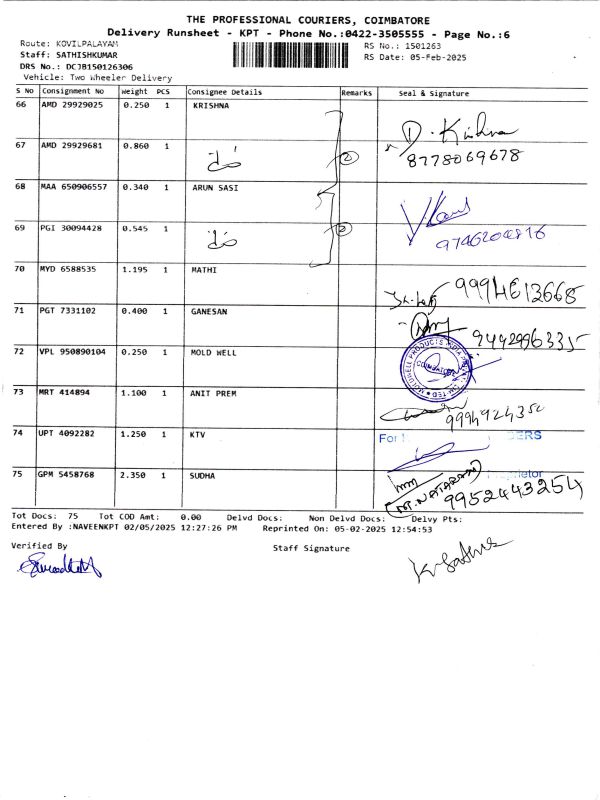 THE PROFESSIONAL COURIERS, COIMBATORE
Delivery Runsheet - KPT - Phone No.:0422-3505555 - Page No.:6
Route: KOVILPALAYAM
RS No.: 1501263
Staff: SATHISHKUMAR
RS Date: 05-Feb-2025
DRS No.: DCJB150126306
Vehicle: Two Wheeler Delivery
S No Consignment No Weight PCS Consignee Details Remarks Seal & Signature
66 AMD 29929025 0.250 1 KRISHNA
D. Krishna
67 AMD 29929681 0.860 1 2
8778069678
68 MAA 650906557 0.340 1 ARUN SASI
69 PGI 30094428 0.545 1 2
9746204816
70 MYD 6588535 1.195 1 MATHI
99994613668
71 PGT 7331102 0.400 1 GANESAN
9442996335
72 VPL 950890104 0.250 1 MOLD WELL
COIMBATORE
73 MRT 414894 1.100 1 ANIT PREM
9994924350
74 UPT 4092282 1.250 1 KTV
For
75 GPM 5458768 2.350 1 SUDHA
M. NATARAJ
9952443254
Tot Docs: 75 Tot COD Amt: 0.00 Delvd Docs: Non Delvd Docs: Delvy Pts:
Entered By :NAVEENKPT 02/05/2025 12:27:26 PM Reprinted On: 05-02-2025 12:54:53
Verified By
Staff Signature